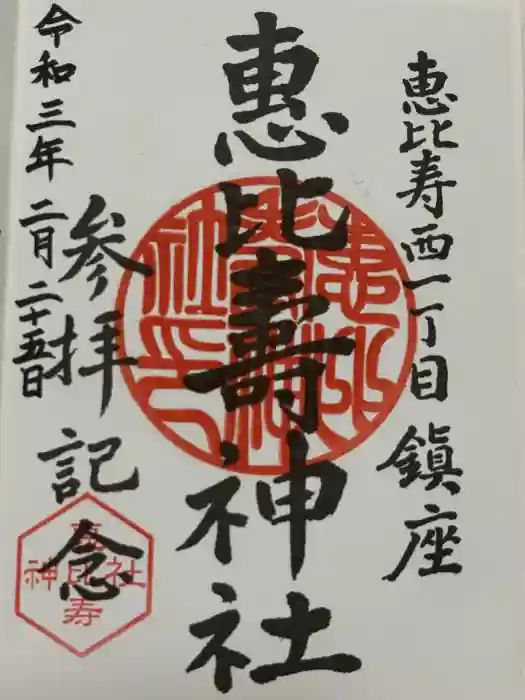 恵比寿西一丁目 鎮座
惠比壽神社
参拝記念
令和三年 二月二十五日
恵比寿
神社